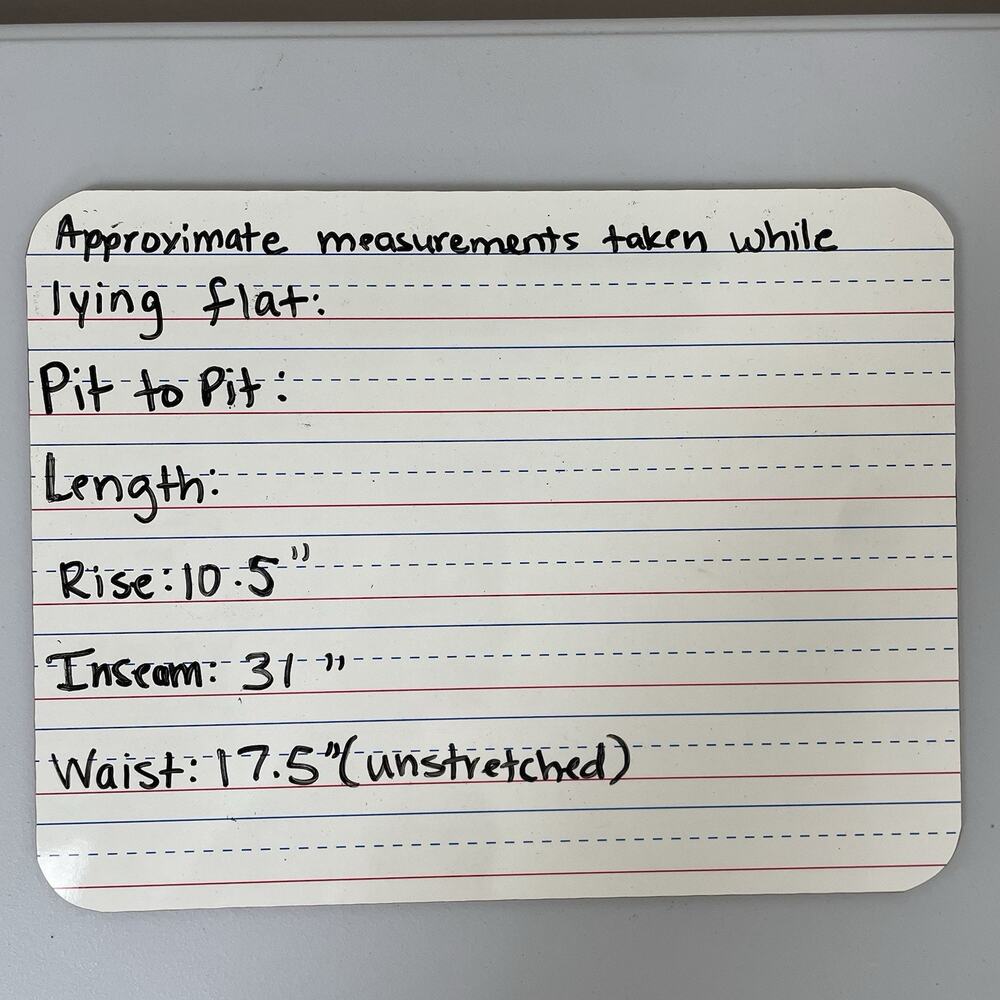 Approximate measurements taken while
lying flat:
Pit to Pit:
Length:
Rise: 10.5"
Inseam: 31"
Waist: 17.5" (unstretched)